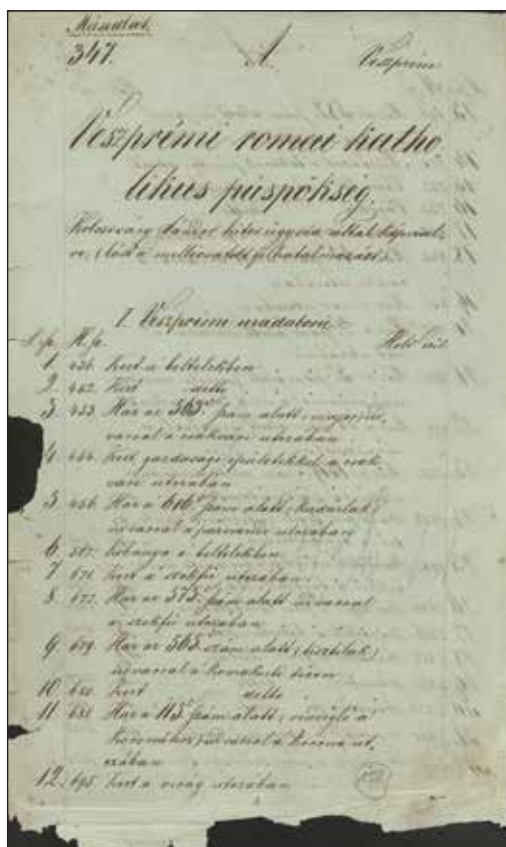 Másolat.
347. A Veszprém
Veszprémi romai katho
likus püspökség.
Kolosváry Sándor hites ügyvéd által képvisel-
ve, (lásd a mellékelt felhatalmazást)
I. Veszprémi uradalom
H. sz. Hold öl
1. 436. Kert a beltelekben
2. 452. Kert detto
3. 453. Ház az 563 szám alatt,
udvarral a csákvári utczában
4. 454. Kert gazdasági épületekkel a csák-
vári utczában
5. 456. Ház a 616 szám alatt
udvarral a utczában
6. 567. Kőbánya a beltelekben
7. 671. Kert a utczában
8. 677. Ház az 573 szám alatt udvarral
a utczában
9. 679. Ház az 565 szám alatt (tisztilak)
udvarral a téren
10. 680. Kert detto
11. 681. Ház a 113 szám alatt, vendéglő a
Koronához, udvarral a Korona ut
czában
12. 695. Kert a virág utczában